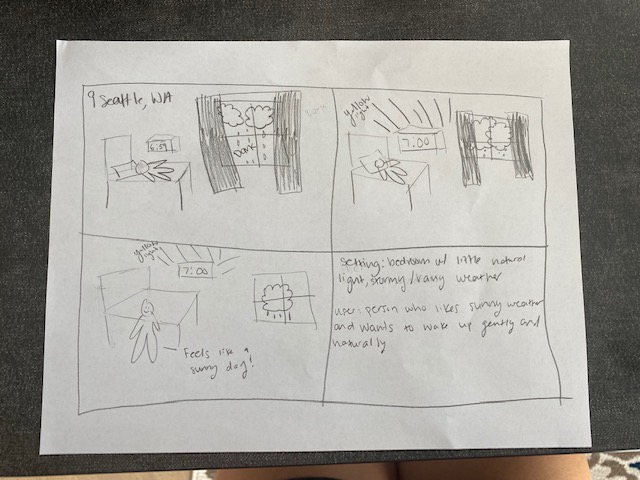 Seattle, WA
6:59
DARK
yellow
light
7:00
yellow
light
7:00
Feels like a
sunny day!
setting: bedroom w/ little natural
light, stormy/rainy weather
user: person who likes sunny weather
and wants to wake up gently and
naturally